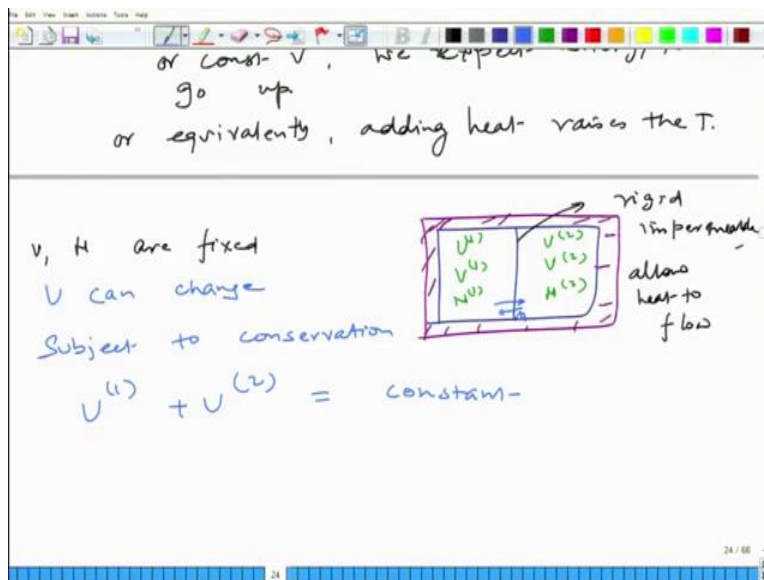 File Edit View Insert Actions Tools Help
B I
or const V, we
go up
or equivalently, adding heat raises the T.
V, N are fixed
U can change
Subject to conservation
U(1) + U(2) = constant
U(1)
V(1)
N(1)
U(2)
V(2)
N(2)
rigid
impermeable
allow
heat to
flow
24 / 66
24